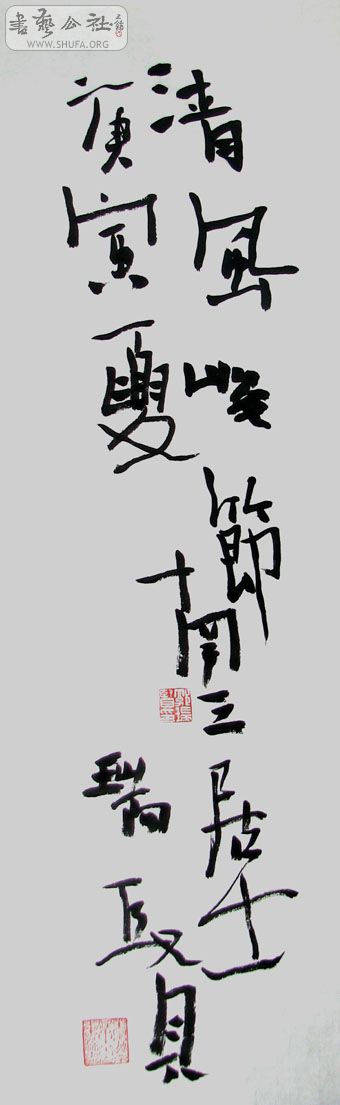 書藝公社
WWW.SHUFA.ORG
清風峻節
南三居士
庚寅夏
瑞賢